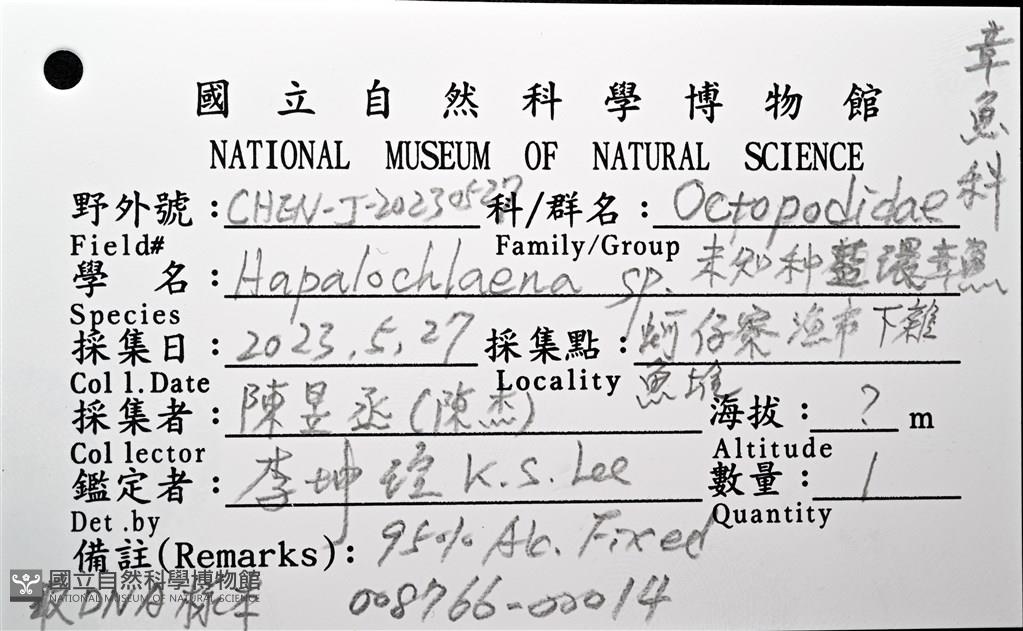 國立自然科學博物館
NATIONAL MUSEUM OF NATURAL SCIENCE
野外號：CHEN-J-20230527 科/群名：Octopodidae 章魚科
Field# Family/Group
學名：Hapalochlaena sp. 未知种藍環章魚
Species
採集日：2023.5.27 採集點：蚵仔寮漁市下雜
Coll.Date Locality 魚堆
採集者：陳昱丞(陳杰) 海拔：? m
Collector Altitude
鑑定者：李坤瑄 K.S. Lee 數量：1
Det.by Quantity
備註(Remarks)：95% Alc. Fixed
國立自然科學博物館
NATIONAL MUSEUM OF NATURAL SCIENCE
取DNA標本 008766-00014